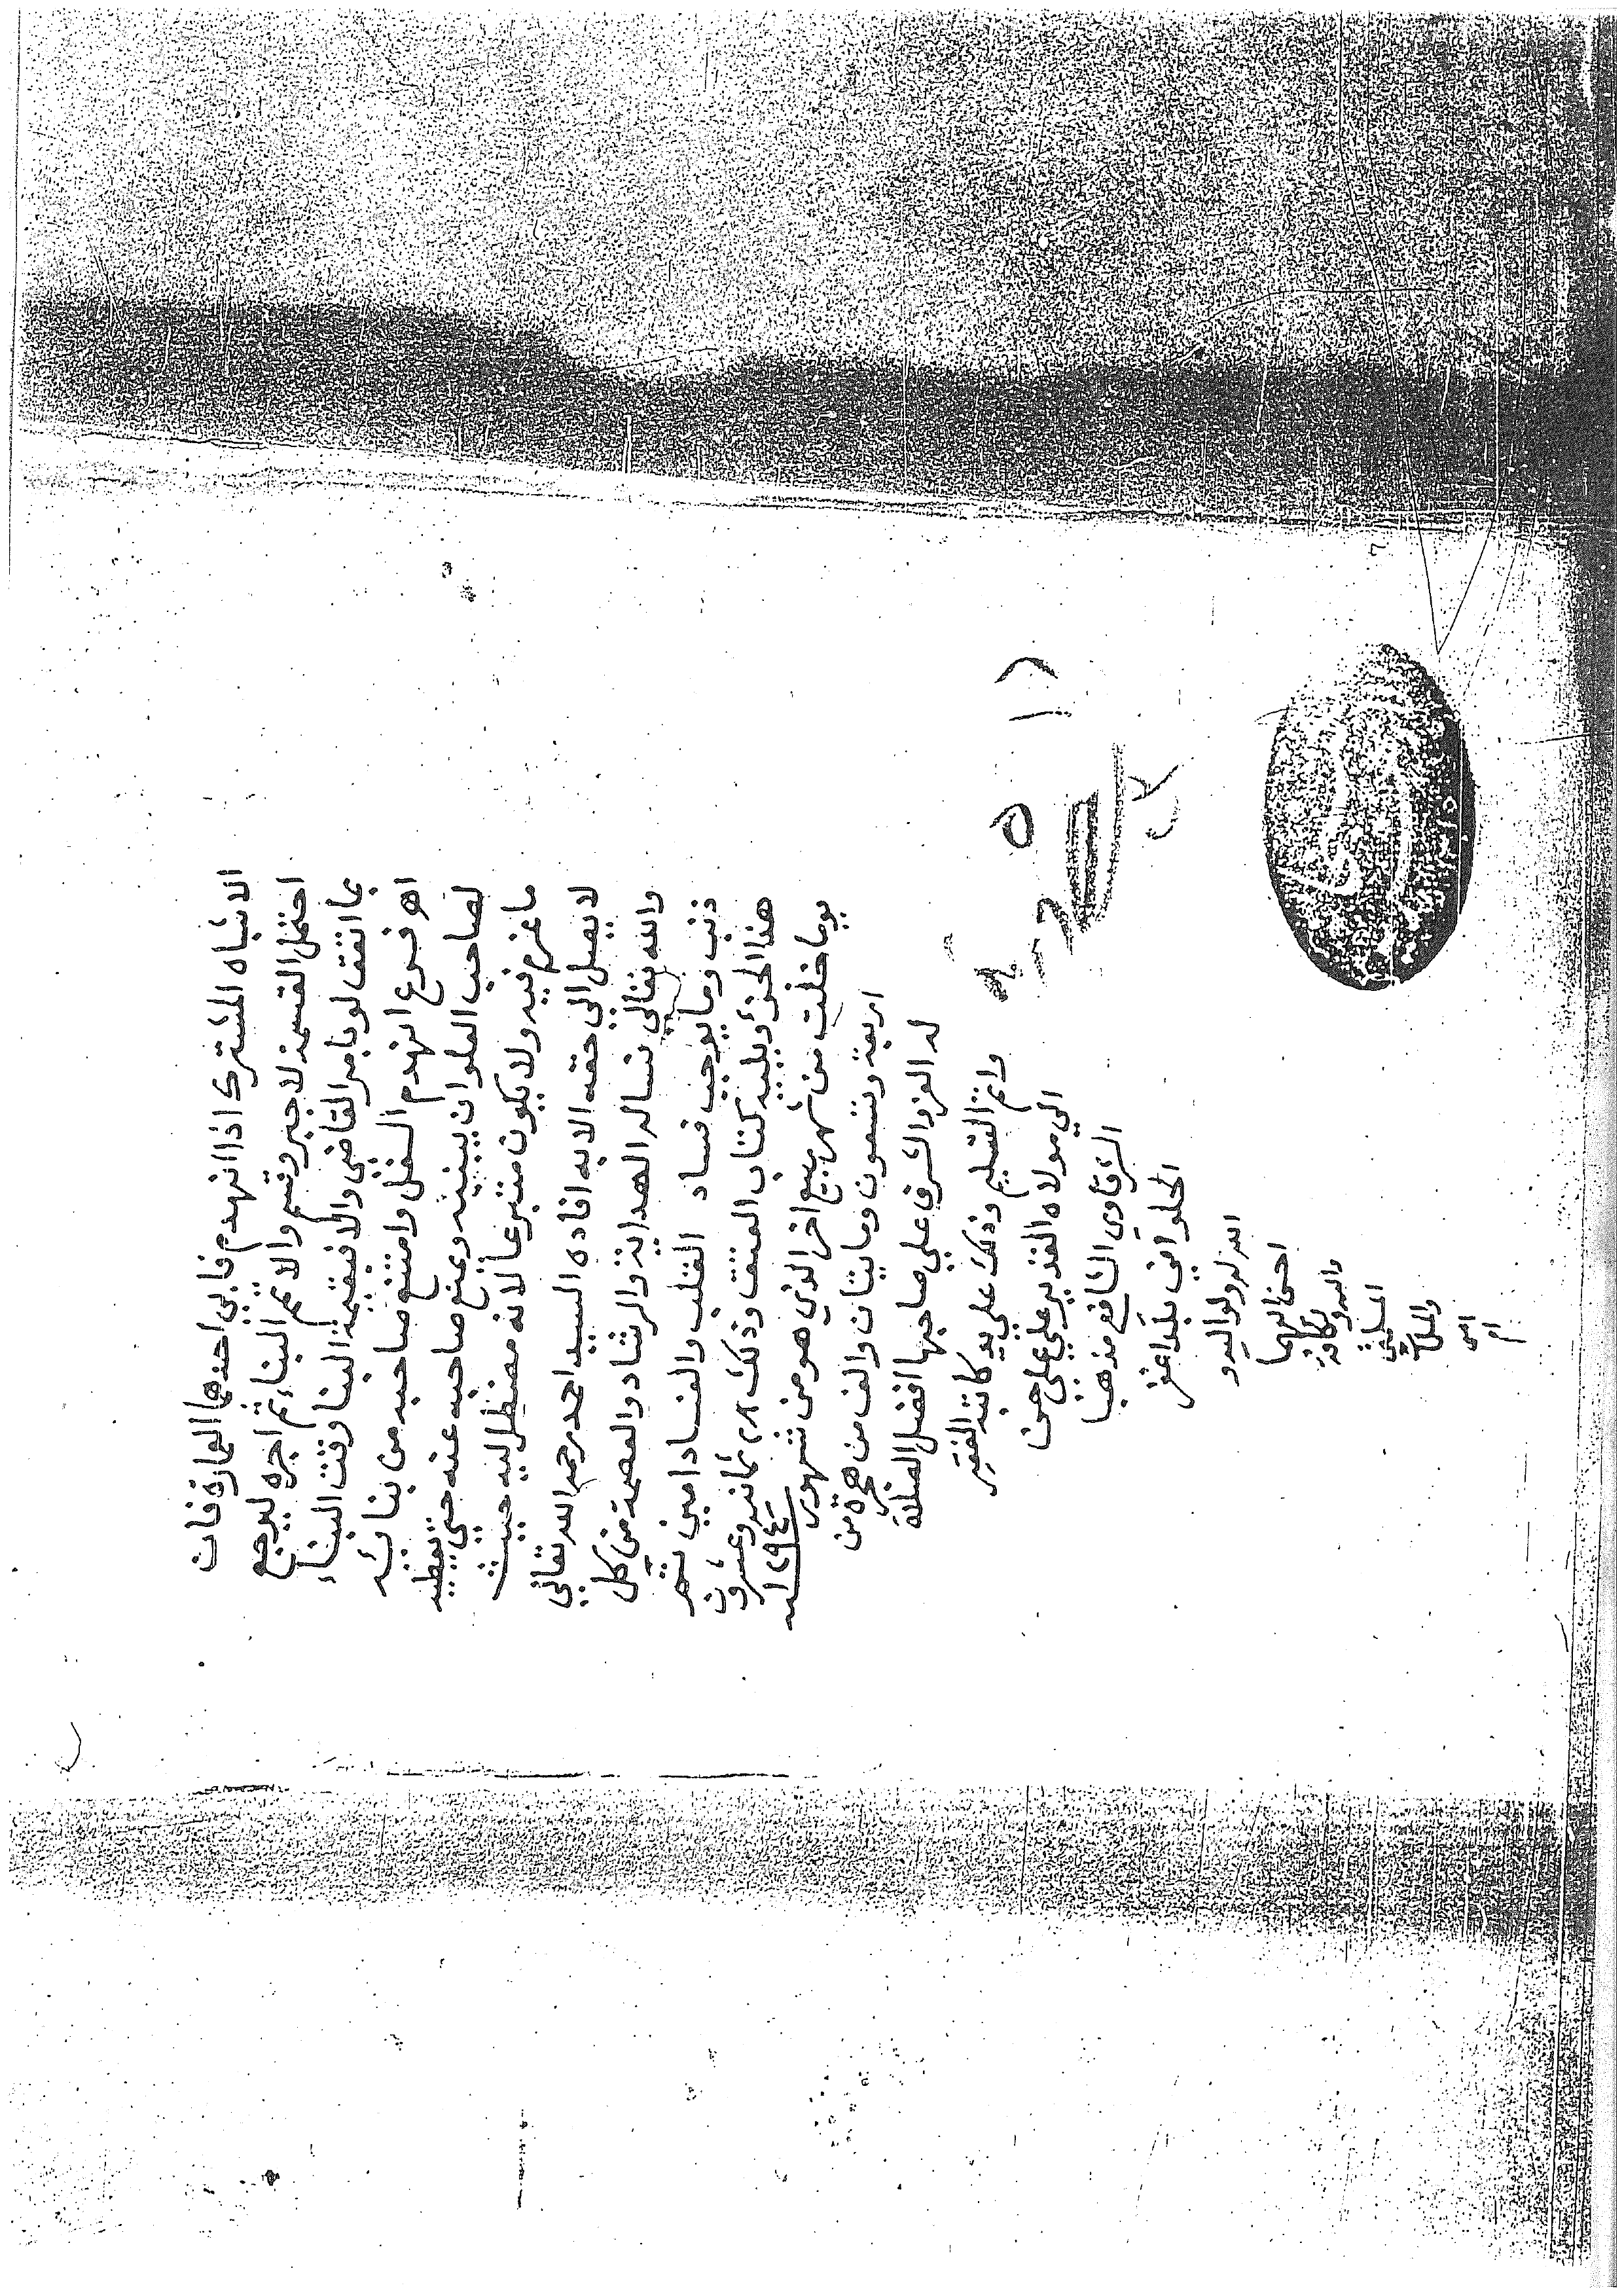 الاشباه المشترك اذا انهدم فابي احدهما العمارة فان
احتمل القسمة لا جبر وقسم والا ثم البناء ثم اجره ليرجع
بما انفق لو بامر القاضي والا فبقيمة البنا وقت البناء
اهـ فروع انهدم السفل وامتنع صاحبه من بنائه
لصاحب العلو ان يبنيه ويمنع صاحبه عنه حتى يعطيه
ما غرم فيه ولا يكون متبرعا لانه مضطر اليه حيث
لا يصل الى حقه الا به افاده السيد احمد رحمه الله تعالي
والله تعالي نساله الهداية والرشاد والعصمة من كل
ذنب وما يوجب فساد القلب والفساد امين تم
هذا الجزؤ ويليه كتاب العتق وذلك ٢٨ ثمانية وعشرون
يوما خلت من شهر ربيع اخر الذي هو من شهور ١٢٩٤ سنه
اربعة وتسعون ومايتان والف من هجرة من
له العز والشرف علي صاحبها افضل الصلاة
واتم التسليم وذلك علي يد كاتبه الفقير
الي مولاه القدير علي علي حسن
الشرقاوي الشافعي مذهبا
الحلواني بلدا غفر
الله له ولوالديه و
احسن اليهما
واليه وكافة
المسلمين
والمسلمات
امين
ام